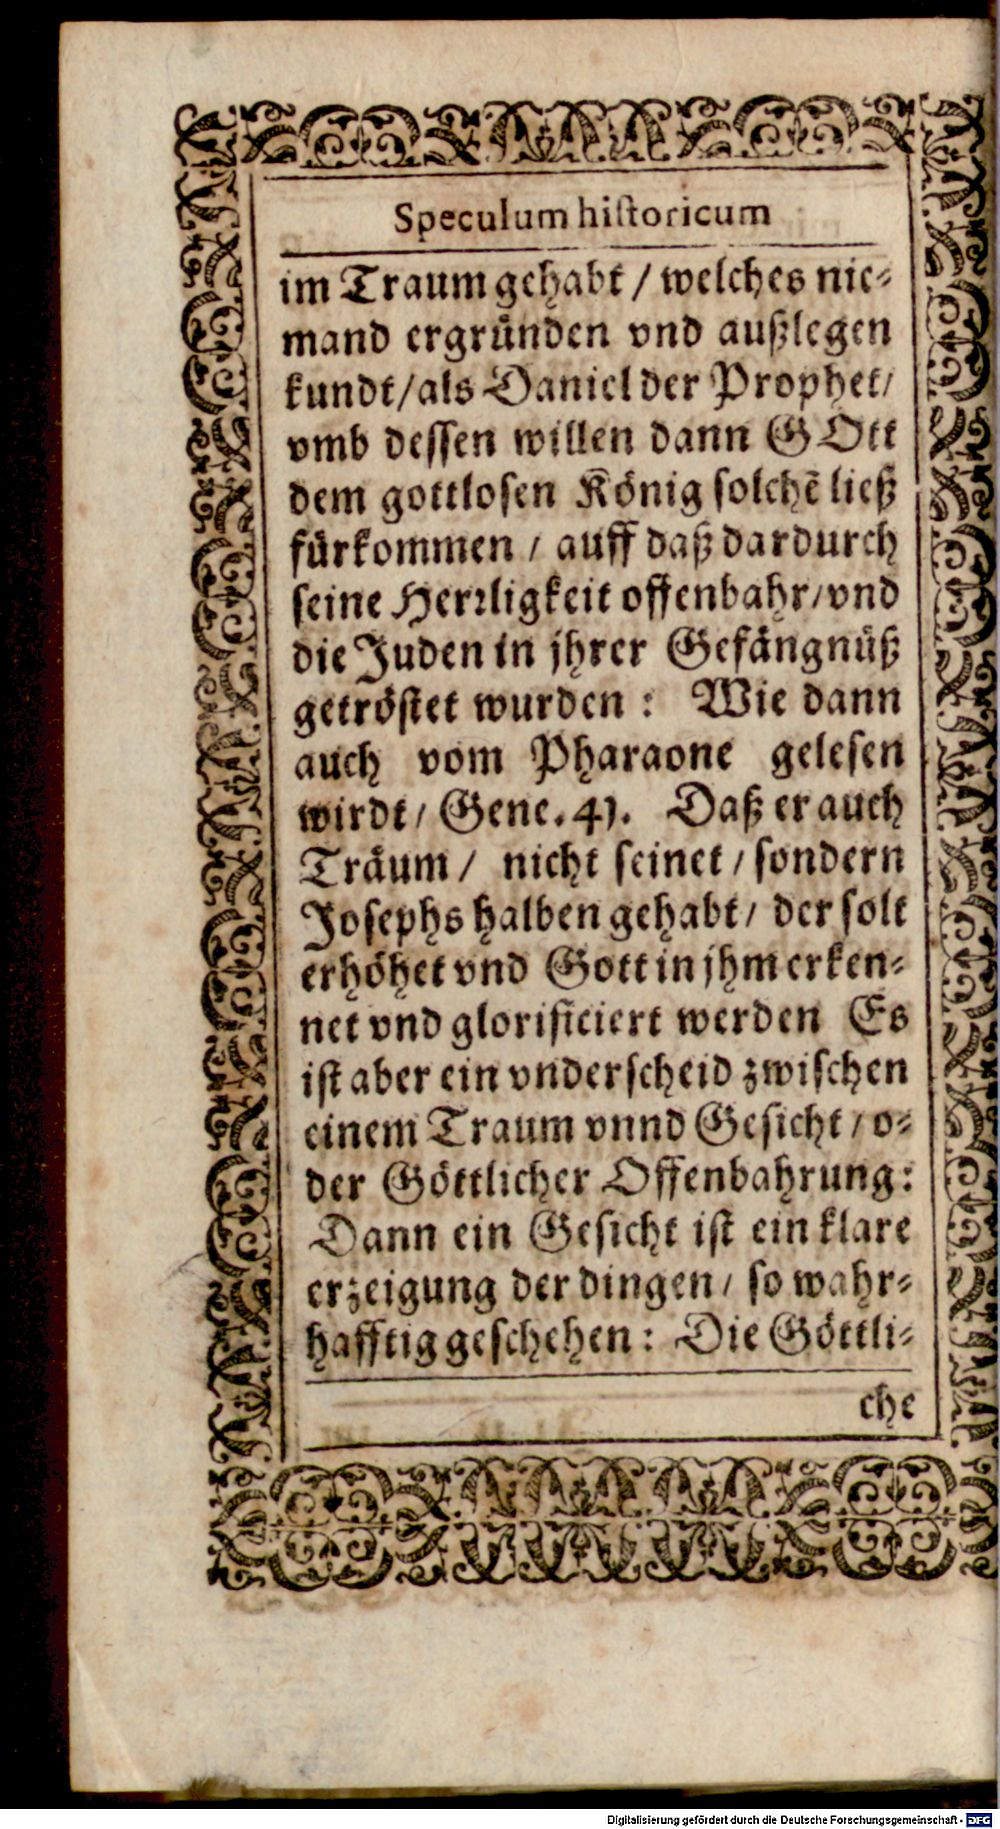 Speculum historicum
im Traum gehabt / welches nie-
mand ergründen vnd außlegen
kundt/als Daniel der Prophet/
vmb dessen willen dann GOtt
dem gottlosen König solchē ließ
fürkommen / auff daß dardurch
seine Herꝛligkeit offenbahr/vnd
die Juden in jhrer Gefängnüß
getröstet wurden : Wie dann
auch vom Pharaone gelesen
wirdt/ Gene. 41. Daß er auch
Träum / nicht seinet / sondern
Josephs halben gehabt/ der solt
erhöhet vnd Gott in jhm erken-
net vnd glorificiert werden Es
ist aber ein vnderscheid zwischen
einem Traum vnnd Gesicht / o-
der Göttlicher Offenbahrung:
Dann ein Gesicht ist ein klare
erzeigung der dingen / so wahr-
hafftig geschehen: Die Göttli-
che
Digitalisierung gefördert durch die Deutsche Forschungsgemeinschaft - DFG